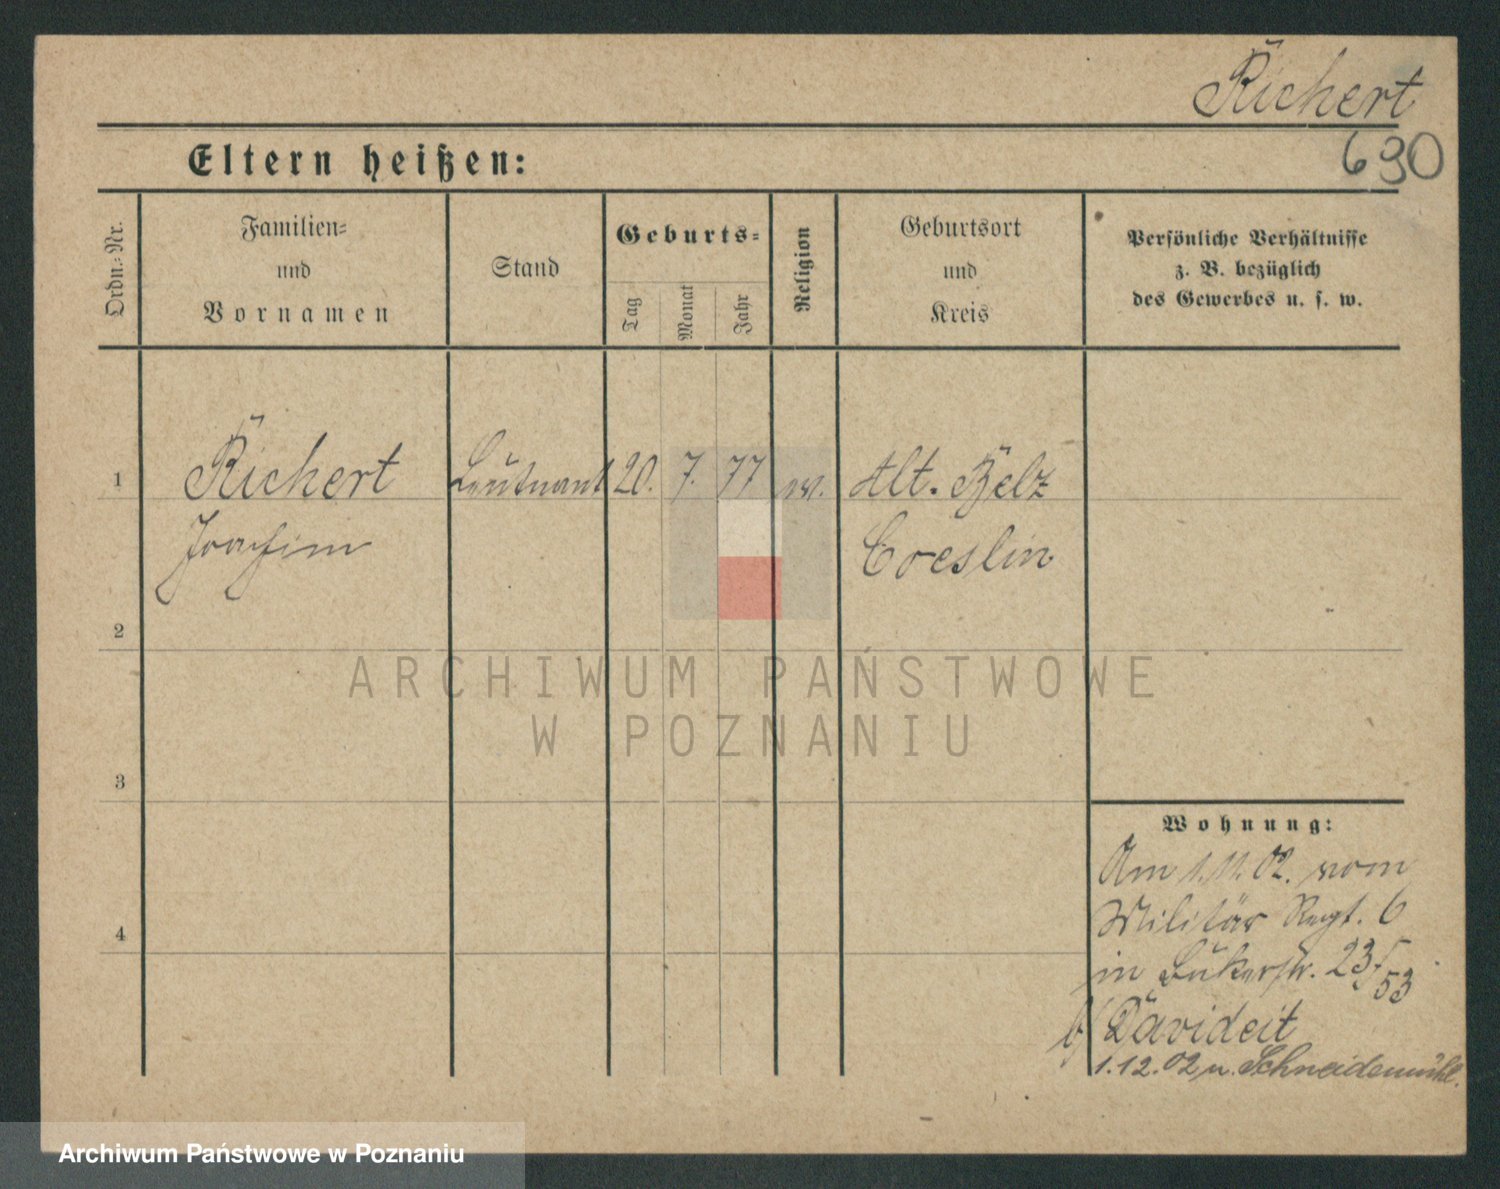 Richert
690
Eltern heißen:
Ordn.-Nr.
Familien-
und
Vornamen
Stand
Geburts-
Tag
Monat
Jahr
Religion
Geburtsort
und
Kreis
Persönliche Verhältnisse
z. B. bezüglich
des Gewerbes u. s. w.
1 Richert Leutnant 20. 7. 77 ev. Alt. Belz
Joachim Coeslin
2
3
4
Wohnung:
Am 1.11.02. vom
Militär Regt. 6
in 23/53
b/ Davideit
1.12.02 n. Schneidemühl.
ARCHIWUM PAŃSTWOWE
W POZNANIU
Archiwum Państwowe w Poznaniu